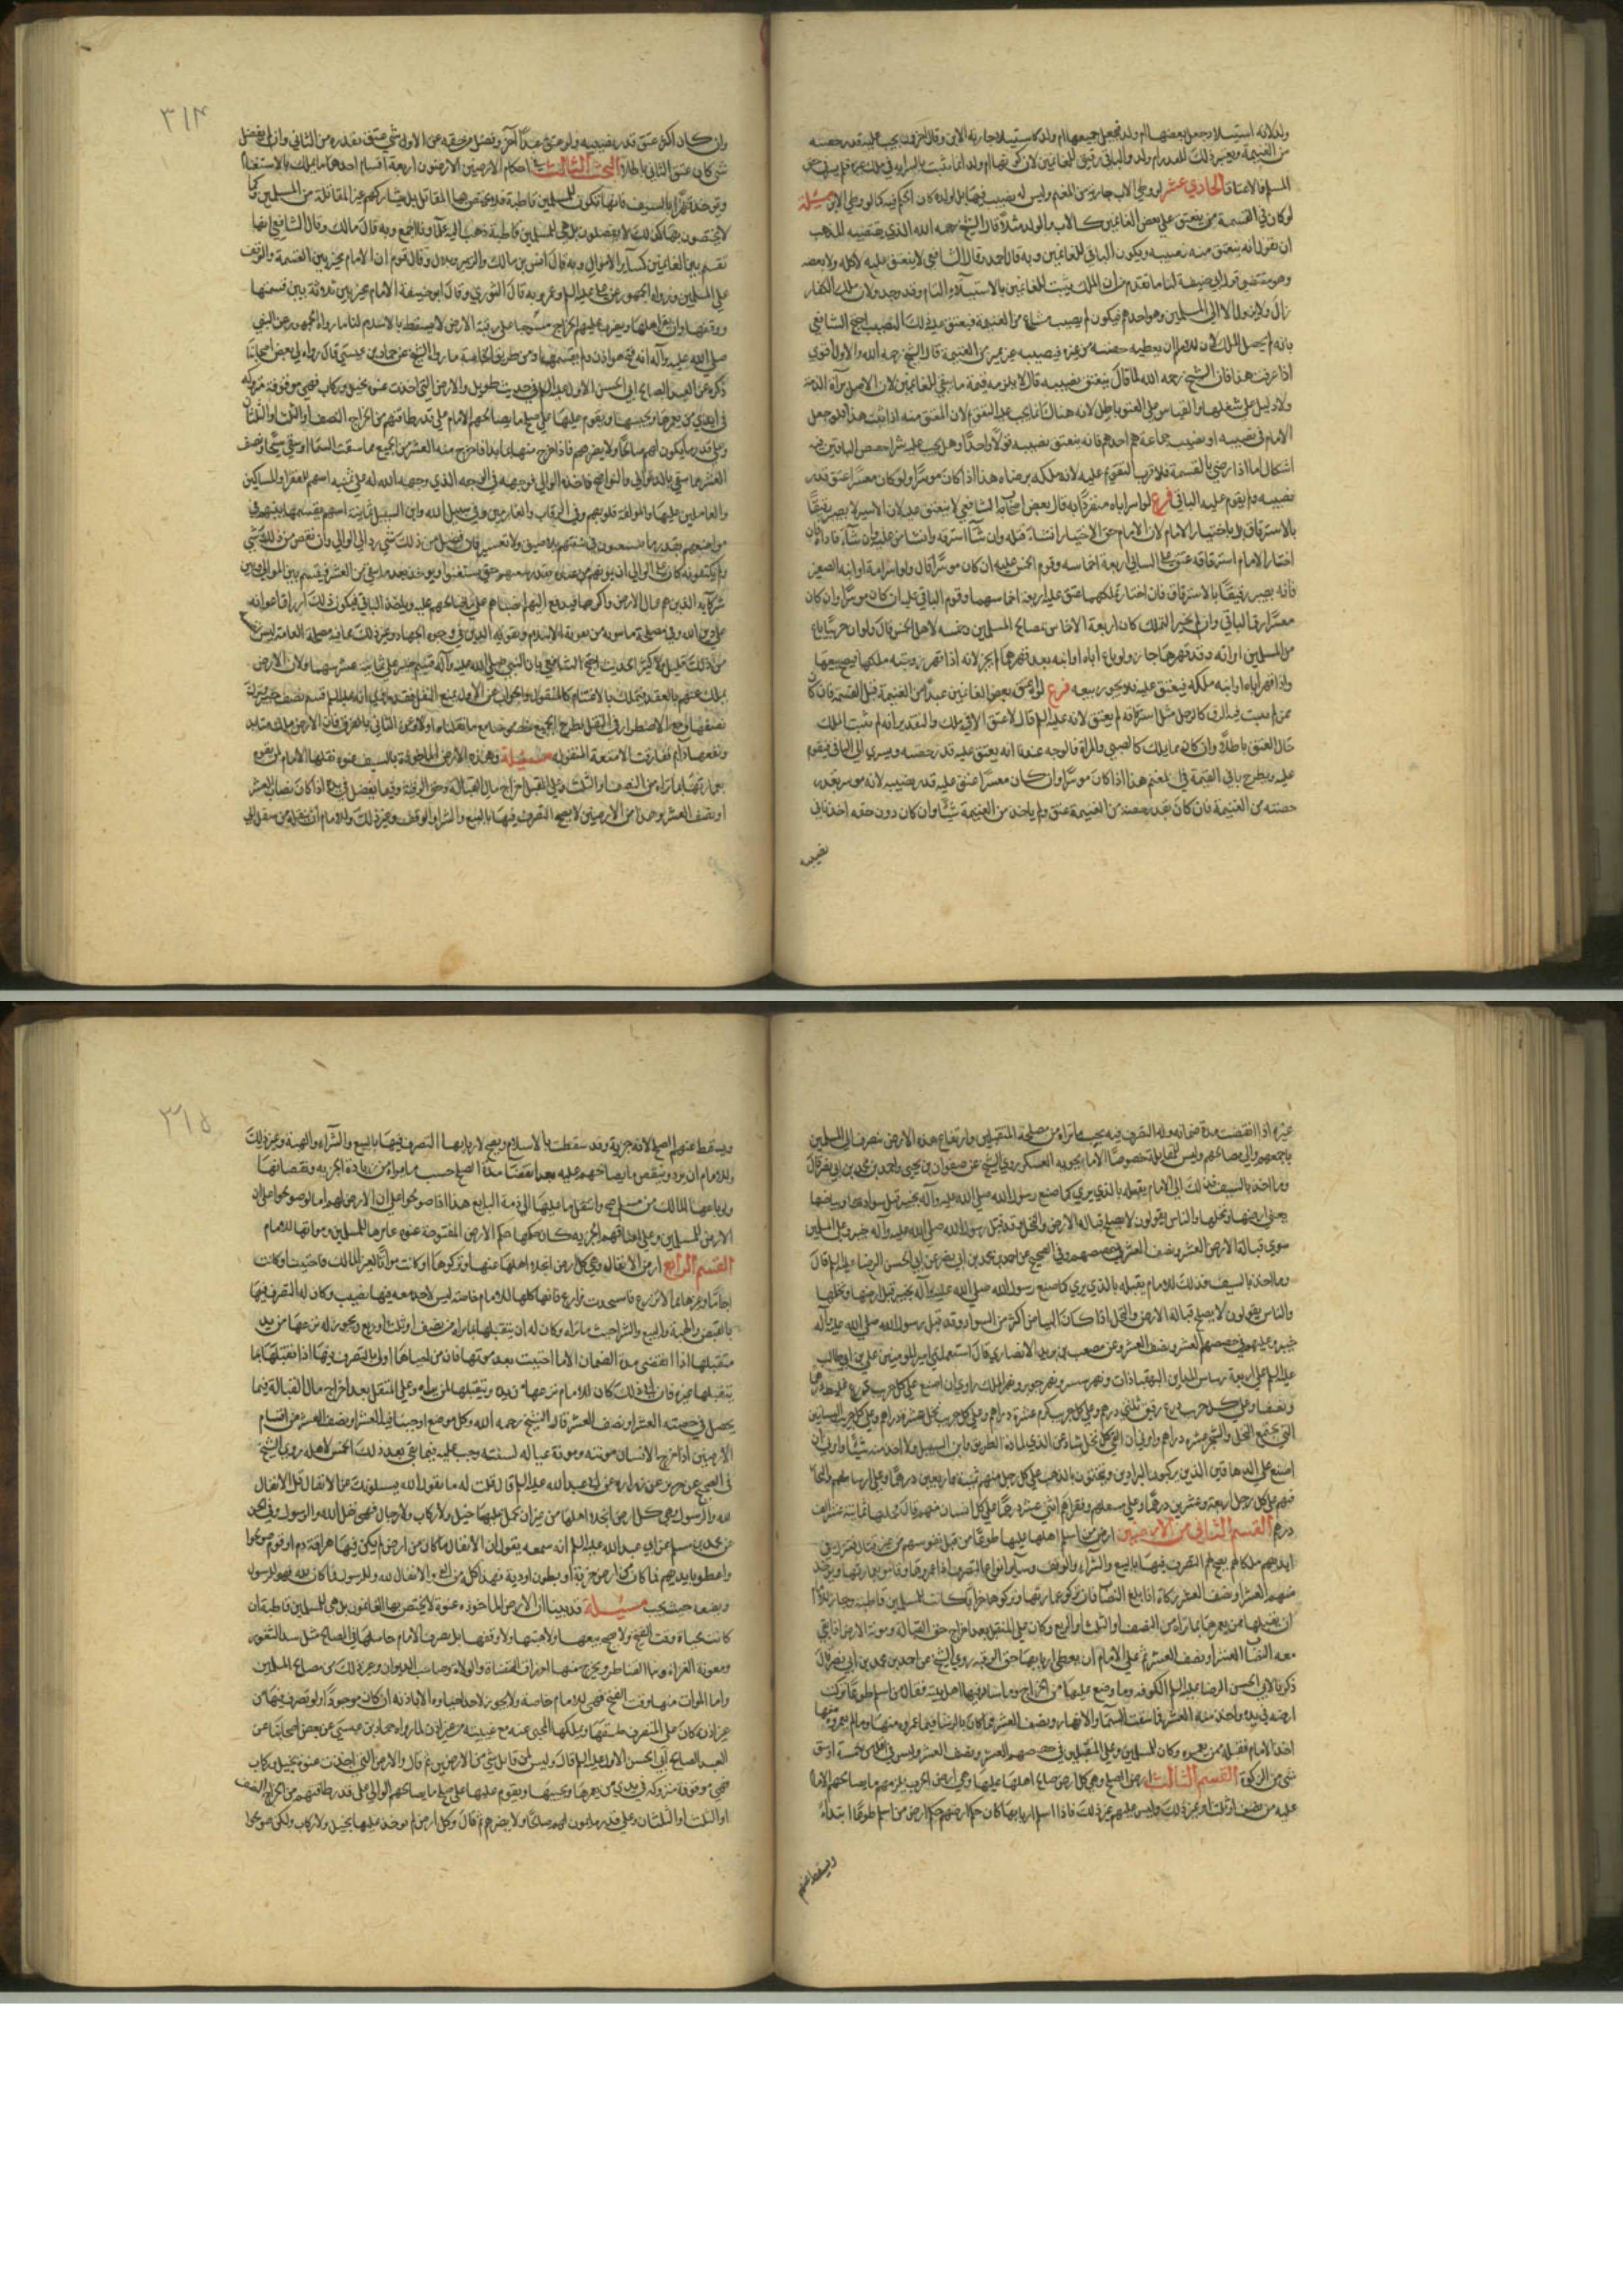 ولد لانه استيلاد جعل بعضها ام ولد فجعل جميعها ام ولد كاستيلاد جارية الابن وقال اخرون يجب عليه قدر حصته
من الغنيمة ويصير ذلك المقدار ام ولد والباقي رقيق للغانمين لان كونها ام ولد انما يثبت بالسراية في ملك غيره فلم يسر في حق
المسلم كالاعتاق الحادي عشر لو وطي الاب جارية من المغنم وليس له نصيب فيها بل لولده كان الحكم فيه كما لو وطي الابن مسئلة
لو كان في القسمة من ينعتق على بعض الغانمين كالاب والولد مثلا قال الشيخ رحمه الله الذي يقتضيه المذهب
ان نقول انه ينعتق منه نصيبه ويكون الباقي للغانمين وبه قال احمد وقال الشافعي لا ينعتق عليه لا كله ولا بعضه
وهو مقتضى قول ابي حنيفة لنا ما تقدم من ان الملك يثبت للغانمين بالاستيلاء التام وقد وجد ولان ملك الكفار
زال ولا يزول الا الى المسلمين وهو احدهم فيكون له نصيب مشاع من الغنيمة فيعتق عليه ذلك النصيب احتج الشافعي
بانه لم يحصل الملك لان للامام ان يعطيه حصته من غيره فنصيبه غير متميز من الغنيمة قال الشيخ رحمه الله والاول اقوى
اذا عرفت هذا فان الشيخ رحمه الله لما قال ينعتق نصيبه قال لا يلزمه قيمة ما بقي للغانمين لان الاصل براءة الذمة
ولا دليل على شغلها والقياس على المعتق باطل لانه هناك انما يجب عليه التقويم لان العتق منه اذا ثبت هذا فلو جعل
الامام في نصيبه او نصيب جماعة هو احدهم فانه ينعتق نصيبه قولا واحدا وهل يجب عليه شراء حصص الباقين فيه
اشكال اما اذا رضي بالقسمة فالاقرب التقويم عليه لانه ملكه برضاه هذا اذا كان موسرا ولو كان معسرا عتق قدر
نصيبه ولم يقوم عليه الباقي فرع لو اسر اباه منفردا به قال بعض اصحاب الشافعي لا ينعتق عليه لان الاسير لا يصير رقيقا
بالاسترقاق بل باختيار الامام لان الامام حق الاختيار ان شاء قتله وان شاء استرقه وان شاء من عليه وان شاء فاداه فان
اختار الامام استرقاقه عتق على السابي اربعة اخماسه وقوم الخمس عليه ان كان موسرا قال ولو اسر امه او ابنه الصغير
فانه يصير رقيقا بالاسترقاق فان اختار تملكهما عتق عليه اربعة اخماسهما وقوم الباقي عليه ان كان موسرا وان كان
معسرا رق الباقي وان لم يختر التملك كان اربعة الاخماس لمصالح المسلمين وخمسه لاهل الخمس قال ولو ان حربيا باع
من المسلمين امراته وقد قهرها جاز ولو باع اباه او ابنه بعد قهرهما لم يجز لانه اذا قهر زوجته ملكها فيصح بيعها
واذا قهر اباه او ابنه ملكه فينعتق عليه فلا يجوز بيعه فرع لو اعتق بعض الغانمين عبدا من الغنيمة قبل القسمة فان كان
ممن لم يثبت فيه الرق كالرجل قبل استرقاقه لم يعتق لانه عليه السلام قال لا عتق الا في ملك والتقدير انه لم يثبت الملك
حال العتق باطلا وان كان مما يملك كالصبي والمراة فالوجه عندنا انه يعتق عليه قدر حصته ويسري الى الباقي فيقوم
عليه ويطرح باقي القيمة في المغنم هذا اذا كان موسرا وان كان معسرا عتق عليه قدر نصيبه لانه موسر بقدر
حصته من الغنيمة فان كان بقدر حصته من الغنيمة عتق ولم ياخذ من الغنيمة شيئا وان كان دون حقه اخذ باقي
نصيبه
٣١٤
وان كان اكثر عتق قدر نصيبه ولو عتق عبدا آخر وفضل من حقه عن الاول شي عتق بقدره من الثاني وان لم يفضل
شي كان عتق الثاني باطلا البحث الثالث في احكام الارضين الارضون اربعة اقسام احدها ما يملك بالاستغنام
ويؤخذ قهرا بالسيف فانها تكون للمسلمين قاطبة فلا يختص بها المقاتلة بل يشاركهم غير المقاتلة من المسلمين وكما
لا يختصون بها كذلك لا يفضلون بل هي للمسلمين قاطبة ذهب اليه علماؤنا اجمع وبه قال مالك وقال الشافعي انها
تقسم بين الغانمين كسائر الاموال وبه قال انس بن مالك والزبير وبلال وقال قوم ان الامام مخير بين القسمة والوقف
على المسلمين ورواه الجمهور عن علي عليه السلام وعمر وبه قال الثوري وقال ابو حنيفة الامام مخير بين ثلاثة بين قسمتها
ووقفها وان يقر اهلها ويضرب عليهم الخراج يصير حقا على رقبة الارض لا يسقط بالاسلام لنا ما رواه الجمهور عن النبي
صلى الله عليه وآله انه فتح هوازن ولم يقسمها ومن طريق الخاصة ما رواه الشيخ عن حماد بن عيسى قال رواه لي بعض اصحابنا
ذكره عن العبد الصالح ابي الحسن الاول عليه السلام في حديث طويل والارض التي اخذت عنوة بخيل وركاب فهي موقوفة متروكة
في ايدي من يعمرها ويحييها ويقوم عليها على صلح ما يصالحهم الامام على قدر طاقتهم من الخراج النصف او الثلث او الثلثان
وعلى قدر ما يكون لهم صالحا ولا يضر بهم فاذا خرج منها فابتدا فاخرج منه العشر من الجميع مما سقت السماء او سقي سيحا ونصف
العشر مما سقي بالدوالي والنواضح فاخذه الوالي فوجهه في الوجه الذي وجهه الله له على ثمانية اسهم للفقراء والمساكين
والعاملين عليها والمؤلفة قلوبهم وفي الرقاب والغارمين وفي سبيل الله وابن السبيل ثمانية اسهم يقسمها بينهم في
مواضعهم بقدر ما يستغنون في سنتهم بلا ضيق ولا تقتير فان فضل من ذلك شي رد الى الوالي وان نقص من ذلك شي
ولم يكتفوا به كان على الوالي ان يمونهم من عنده بقدر سعتهم حتى يستغنوا ويؤخذ بعد ما بقي من العشر فيقسم بين الوالي وبين
شركائه الذين هم عمال الارض واكرتها فيدفع اليهم انصباءهم على ما صالحهم عليه وياخذ الباقي فيكون ذلك ارزاق اعوانه
على دين الله وفي مصلحة ما ينوبه من تقوية الاسلام وتقوية الدين في وجوه الجهاد وغير ذلك مما فيه مصلحة العامة ليس لنفسه
من ذلك قليل ولا كثير الحديث احتج الشافعي بان النبي صلى الله عليه وآله قسم خيبر على ثمانية عشر سهما ولان الارض
يملك عنهم بالعقد فيملك بالاغتنام كالمنقول والجواب عن الاول بمنع النقل فقد روي انه عليه السلام قسم نصف خيبر وترك
نصفها ومع الاضطراب في النقل يطرح الجميع خصوصا مع ما نقلناه اولا وعن الثاني بالفرق فان الارض ملك متابد
ونفعها دائم ففارقت الامتعة المنقولة مسئلة وهذه الارض الماخوذة بالسيف عنوة يقبلها الامام لمن يقوم
بعمارتها بما يراه من النصف او الثلث وعلى المتقبل اخراج مال القبالة وحق الرقبة وفيما يفضل في يده اذا كان نصابا العشر
او نصف العشر وهذا من الارضين لا يصح التصرف فيها بالبيع والشراء والوقف وغير ذلك وللامام ان ينقله من متقبل الى
غيره اذا انقضت مدة ضمانه وله التصرف فيه بحسب ما يراه من مصلحة المتقبلين وارتفاع هذه الارض ينصرف الى المسلمين
باجمعهم والى مصالحهم وليس للمقاتلة خصوصا الا ما يحويه العسكر روى الشيخ عن صفوان بن يحيى واحمد بن محمد بن ابي نصر قال
وما اخذ بالسيف فذلك الى الامام يقبله بالذي يرى كما صنع رسول الله صلى الله عليه وآله بخيبر قبل سوادها وبياضها
يعني ارضها ونخلها والناس يقولون لا يصلح قبالة الارض والنخل وقد قبل رسول الله صلى الله عليه وآله خيبر وعلى المسلمين
سوى قبالة الارض العشر ونصف العشر في حصصهم وفي الصحيح عن احمد بن محمد بن ابي نصر عن ابي الحسن الرضا عليه السلام قال
وما اخذ بالسيف فذلك للامام يقبله بالذي يرى كما صنع رسول الله صلى الله عليه وآله بخيبر قبل ارضها ونخلها
والناس يقولون لا يصلح قبالة الارض والنخل اذا كان البياض اكثر من السواد وقد قبل رسول الله صلى الله عليه وآله
خيبر وعليهم في حصصهم العشر ونصف العشر وعن مصعب بن يزيد الانصاري قال استعملني امير المومنين علي بن ابي طالب
عليه السلام على اربعة رساتيق المداين البهقباذات ونهر سير ونهر جوير ونهر الملك وامرني ان اضع على كل جريب زرع غليظ درهما
ونصفا وعلى كل جريب زرع رقيق ثلثي درهم وعلى كل جريب كرم عشرة دراهم وعلى كل جريب نخل عشرة دراهم وعلى كل جريب البساتين
التي تجمع النخل والشجر عشرة دراهم وامرني ان القي كل نخل شاذ عن القرى لمارة الطريق وابن السبيل ولا اخذ منه شيئا وامرني ان
اضع على الدهاقين الذين يركبون البراذين ويتختمون بالذهب على كل رجل منهم ثمانية واربعين درهما وعلى اوساطهم والتجار
منهم على كل رجل اربعة وعشرين درهما وعلى سفلتهم وفقرائهم اثني عشر درهما على كل انسان منهم قال فجبيتها ثمانية عشر الف الف
درهم القسم الثاني من الارضين ارض من اسلم اهلها عليها طوعا من قبل نفوسهم من غير قتال فتترك في
ايديهم ملكا لهم يصح لهم التصرف فيها بالبيع والشراء والوقف وسائر انواع التصرف اذا عمروها وقاموا بعمارتها ويؤخذ
منهم العشر او نصف العشر زكاة اذا بلغ النصاب فان تركوا عمارتها وتركوها خرابا كانت للمسلمين قاطبة وجاز للامام
ان يقبلها ممن يعمرها بما يراه من النصف او الثلث او الربع وكان على المتقبل بعد اخراج حق القبالة ومونة الارض اذا بقي
معه النصاب العشر او نصف العشر ثم على الامام ان يعطي اربابها حق الرقبة روى الشيخ عن احمد بن محمد بن ابي نصر قال
ذكرنا لابي الحسن الرضا عليه السلام الكوفة وما وضع عليها من الخراج وما سار فيها اهل بيته فقال من اسلم طوعا تركت
ارضه في يده واخذ منه العشر مما سقت السماء والانهار ونصف العشر مما كان بالرشاء فيما عمروه منها وما لم يعمروه منها
اخذه الامام فقبله ممن يعمره وكان للمسلمين وعلى المتقبلين في حصصهم العشر ونصف العشر وليس في اقل من خمسة اوسق
شي من الزكوة القسم الثالث ارض الصلح وهي كل ارض صالح اهلها عليها وهي ارض الجزية يلزمهم ما يصالحهم الامام
عليه من نصف او ثلث او غير ذلك وليس عليهم غير ذلك فاذا اسلم اربابها كان حكم ارضهم حكم ارض من اسلم طوعا ابتداء
ويسقط عنهم
٣١٥
ويسقط عنهم الصلح لانه جزية وقد سقطت بالاسلام ويصح لاربابها التصرف فيها بالبيع والشراء والهبة وغير ذلك
وللامام ان يزيد وينقص ما يصالحهم عليه بعد انقضاء مدة الصلح حسب ما يراه من زيادة الجزية ونقصانها
ولو باعها المالك من مسلم صح وانتقل ما عليها الى ذمة البايع هذا اذا صولحوا على ان الارض لهم اما لو صولحوا على ان
الارض للمسلمين وعلى اعناقهم الجزية كان حكمها حكم الارض المفتوحة عنوة عامرها للمسلمين ومواتها للامام
القسم الرابع ارض الانفال وهي كل ارض انجلا اهلها عنها وتركوها او كانت مواتا لغير مالك فاحييت او كانت
اجاما وغيرها مما لا يزرع فاستحدثت مزارع فانها كلها للامام خاصة ليس لاحد معه فيها نصيب وكان له التصرف فيها
بالقبض والهبة والبيع والشراء حيث يراه وكان له ان يقبلها بما يراه من نصف او ثلث او ربع ويجوز له نزعها من يد
متقبلها اذا انقضى مدة الضمان الا ما احييت بعد موتها فان من احياها اولى بالتصرف فيها اذا تقبلها بما
يتقبلها غيره فان ابى ذلك كان للامام نزعها من يده وتقبيلها لمن يراه وعلى المتقبل بعد اخراج مال القبالة فيما
يحصل في حصته العشر او نصف العشر قال الشيخ رحمه الله وكل موضع اوجبنا فيه العشر او نصف العشر من اقسام
الارضين اذا اخرج الانسان مونته ومونة عياله لسنته وجب عليه فيما بقي بعد ذلك الخمس لاهله روى الشيخ
في الصحيح عن حريز عن زرارة عن ابي عبد الله عليه السلام قال قلت له ما يقول الله يسئلونك عن الانفال قل الانفال
لله والرسول وهي كل ارض انجلا اهلها من غير ان يحمل عليها خيل ولا ركاب ولا رجال فهي نفل لله والرسول وفي
عن محمد بن مسلم عن ابي عبد الله عليه السلام انه سمعه يقول ان الانفال ما كان من ارض لم يكن فيها هراقة دم او قوم صولحوا
واعطوا بايديهم فما كان من ارض خربة او بطون اودية فهذا كله من الفيء والانفال لله وللرسول فما كان لله فهو للرسول
ويضعه حيث يحب مسئلة قد بينا ان الارض الماخوذة عنوة لا يختص بها الغانمون بل هي للمسلمين قاطبة ان
كانت محياة وقت الفتح ولا يصح بيعها ولا هبتها ولا وقفها بل يصرف الامام حاصلها في المصالح مثل سد الثغور
ومعونة الغزاة وبناء القناطر ويخرج منها ارزاق القضاة والولاة وصاحب الديوان وغير ذلك من مصالح المسلمين
واما الموات منها وقت الفتح فهي للامام خاصة ولا يجوز لاحد احياؤه الا باذنه ان كان موجودا ولو تصرف فيها من
غير اذنه كان على المتصرف طسقها ويملكها المحيي عند غيبته من غير اذن لما رواه حماد بن عيسى عن بعض اصحابنا عن
العبد الصالح ابي الحسن الاول عليه السلام قال وليس لمن قاتل شي من الارضين ثم قال والارض التي اخذت عنوة بخيل وركاب
فهي موقوفة متروكة في يدي من يعمرها ويحييها ويقوم عليها على صلح ما يصالحهم الوالي على قدر طاقتهم من الخراج النصف
او الثلث او الثلثان وعلى قدر ما يكون لهم صالحا ولا يضر بهم ثم قال وكل ارض لم يوجف عليها بخيل ولا ركاب ولكن صولحوا